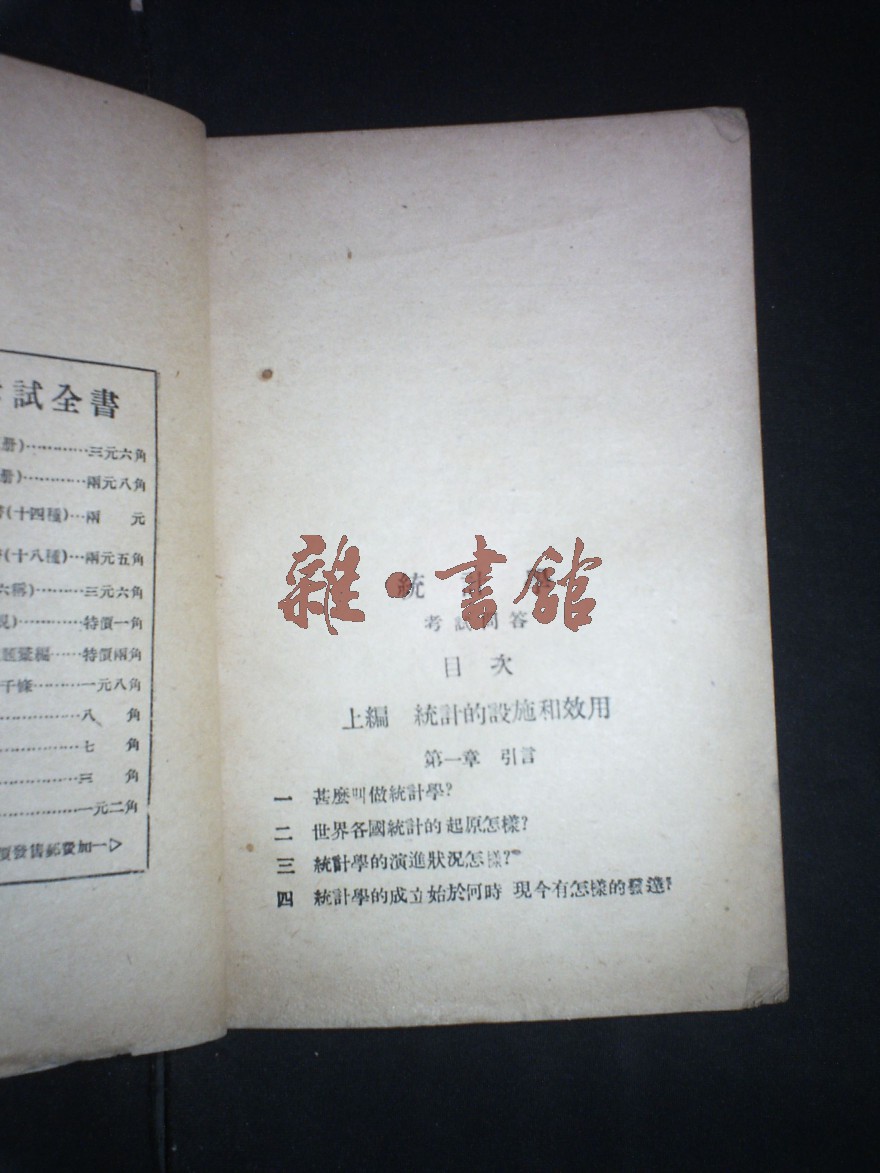 試全書
册)…………三元六角
册)…………兩元八角
(十四種)…兩 元
(十八種)…兩元五角
)…………三元六角
)…………特價一角
題彙編……特價兩角
千條…………一元八角
…………八 角
…………七 角
…………三 角
…………一元二角
發售郵費加一▷
雜·書館
統計學
考試問答
目次
上編 統計的設施和效用
第一章 引言
一 甚麽叫做統計學?
二 世界各國統計的起原怎樣?
三 統計學的演進狀況怎樣?
四 統計學的成立始於何時 現今有怎樣的發達?